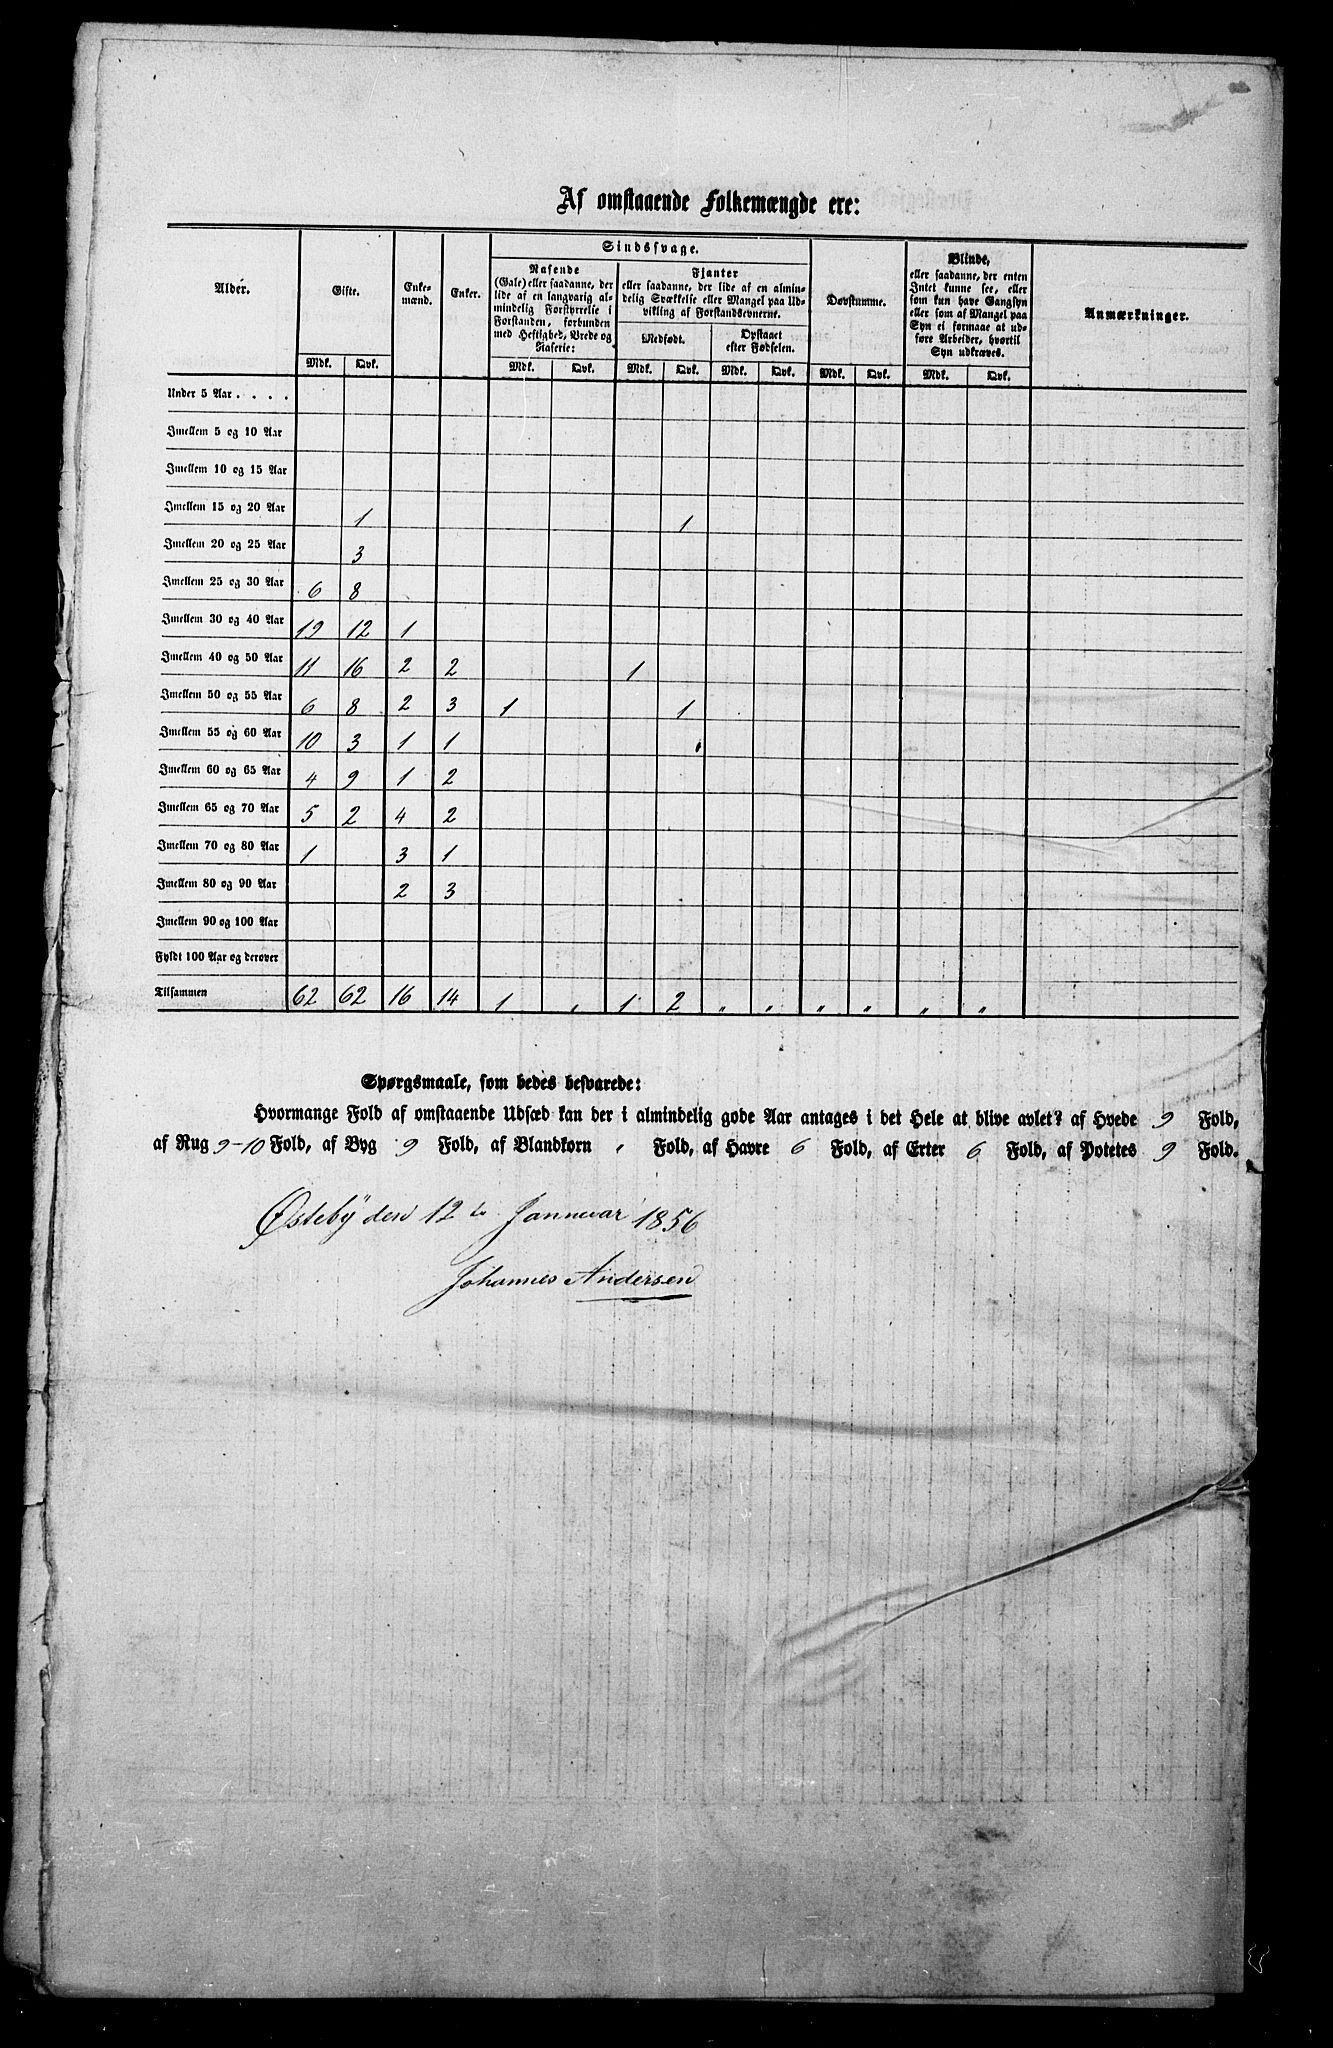 Af omstaaende Folkemængde ere:
Alder. | Gifte. | Enke-mænd. | Enker. | Sindssvage. | Døvstumme. | Blinde, eller saadanne, der enten Intet kunne see, eller som kun have Gangsyn eller som af Mangel paa Syn ei formaae at udføre Arbeider, hvortil Syn udkræves. | Anmærkninger.
Rasende (Gale) eller saadanne, der lide af en langvarig almindelig Forstyrrelse i Forstanden, forbunden med Heftighed, Vrede og Raserie: | Fjanter eller saadanne, der lide af en almindelig Svækkelse eller Mangel paa Udvikling af Forstandsevnerne.
Medfødt. | Opstaaet efter Fødselen.
Mdk. | Qvk. | Mdk. | Qvk. | Mdk. | Qvk. | Mdk. | Qvk. | Mdk. | Qvk. | Mdk. | Qvk.
Under 5 Aar . . . .
Imellem 5 og 10 Aar
Imellem 10 og 15 Aar
Imellem 15 og 20 Aar 1 1
Imellem 20 og 25 Aar 3
Imellem 25 og 30 Aar 6 8
Imellem 30 og 40 Aar 19 12 1
Imellem 40 og 50 Aar 11 16 2 2 1
Imellem 50 og 55 Aar 6 8 2 3 1 1
Imellem 55 og 60 Aar 10 3 1 1
Imellem 60 og 65 Aar 4 9 1 2
Imellem 65 og 70 Aar 5 2 4 2
Imellem 70 og 80 Aar 1 3 1
Imellem 80 og 90 Aar 2 3
Imellem 90 og 100 Aar
Fyldt 100 Aar og derover
Tilsammen 62 62 16 14 1 , 1 2 " " " " " "
Spørgsmaale, som bedes besvarede:
Hvormange Fold af omstaaende Udsæd kan der i almindelig gode Aar antages i det Hele at blive avlet? af Hvede 9 Fold,
af Rug 9-10 Fold, af Byg 9 Fold, af Blandkorn " Fold, af Havre 6 Fold, af Erter 6 Fold, af Potetes 9 Fold.
Østeby den 12te Jannuar 1856
Johannes Andersen